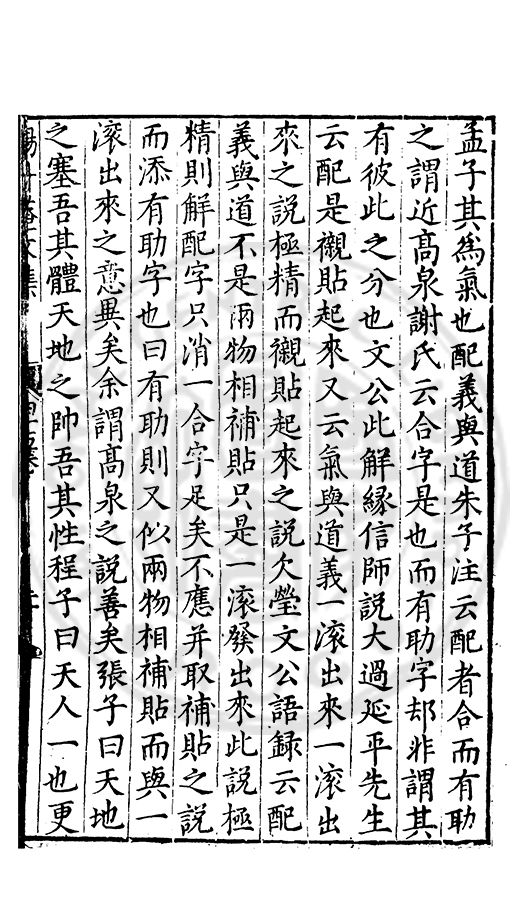 孟子其為氣也配義與道朱子注云配者合而有助
之謂近髙泉謝氏云合字是也而有助字却非謂其
有彼此之分也文公此解緣信師說大過延平先生
云配是襯貼起來又云氣與道義一滚出來一滚出
來之說極精而襯貼起來之說欠瑩文公語録云配
義與道不是兩物相補貼只是一滚發出來此說極
精則解配字只消一合字足矣不應并取補貼之說
而添有助字也曰有助則又似兩物相補貼而與一
滚出來之意異矣余謂髙泉之說善矣張子曰天地
之塞吾其體天地之帥吾其性程子曰天人一也更
文集